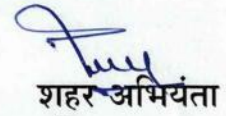 शहर अभियंता